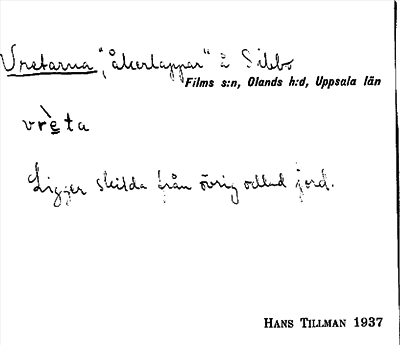 Vretarna, "åkerlappar" å Sibbo
Films s:n, Olands h:d, Uppsala län
vrèta
Ligger skilda från övrig odlad jord.
HANS TILLMAN 1937